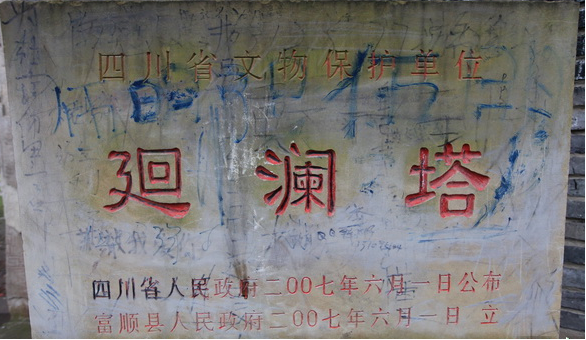 四川省文物保护单位
廻澜塔
四川省人民政府二〇〇七年六月一日公布
富顺县人民政府二〇〇七年六月一日 立